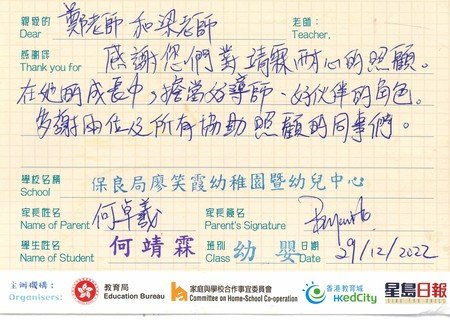 親愛的 鄭老師 和 梁老師 老師:
Dear Teacher,
感謝您 感謝您們對靖霖耐心的照顧。
Thank you for
在她的成長中，擔當好導師、好伙伴的角色。
多謝兩位及所有協助照顧的同事們。
學校名稱 保良局廖笑霞幼稚園暨幼兒中心
School
家長姓名 何卓羲 家長簽名
Name of Parent Parent's Signature
學生姓名 何靖霖 班別 幼嬰 日期 29/12/2022
Name of Student Class Date
主辦機構: 教育局 家庭與學校合作事宜委員會 香港教育城 星島日報
Organisers: Education Bureau Committee on Home-School Co-operation HKedCity SING TAO DAILY